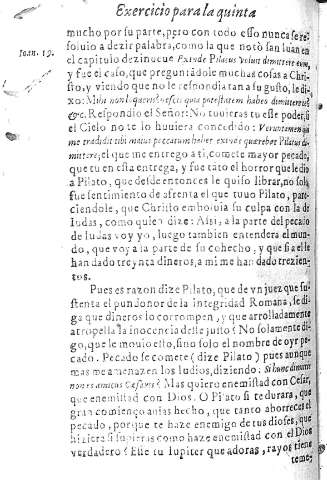 Exercicio para la quinta
mucho por su parte, pero con todo esso nunca se re-
soluio a dezir palabra, como la que notò san Iuan en
Ioan. 19.
el capitulo dezinueue Exinde Pilatus voluit dimittere eum,
y fue el caso, que preguntãdole muchas cosas a Chri-
sto, y viendo que no le respondia tan a su gusto, le di-
xo: Mihi non loqueris? nescis quia potestatem habeo dimittere te
&c. Respondio el Señor: No tuuieras tu esse poder, si
el Cielo no te lo huuiera concedido: Veruntamen qui
me tradidit tibi maius peccatum habet exinde quærebat Pilatus di-
mittere, el que me entrego a ti, comete mayor pecado,
que tu en esta entrega, y fue tãto el horror que le dio
a Pilato, que desde entonces le quiso librar, no solo
fue sentimiento de afrenta el que tuuo Pilato, pare-
ciendole, que Christo emboluia su culpa con la de
Iudas, como quien dize: Assi, a la parte del pecado
de Iudas voy yo, luego tambien entendera el mun-
do, que voy a la parte de su cohecho, y que si a el le
han dado treynta dineros, a mi me han dado trezien-
tos.
Pues es razon dize Pilato, que de vn juez que su-
stenta el pundonor de la integridad Romana, se di-
ga que dineros lo corrompen, y que arrolladamente
atropella la inocencia deste justo? No solamente di-
go, que le mouio esto, sino solo el nombre de oyr pe-
cado. Pecado se comete (dize Pilato) pues aunque
mas me amenazen los Iudios, diziendo: Si hunc dimittis
non es amicus Cæsaris? Mas quiero enemistad con Cesar,
que enemistad con Dios. O Pilato si te durara, que
gran comienço auias hecho, que tanto aborreces el
pecado, porque te haze enemigo de tus dioses, que
hiziera si supieras como haze enemistad con el Dios
verdadero? Esse tu Iupiter que adoras, rayos tiene
teme,